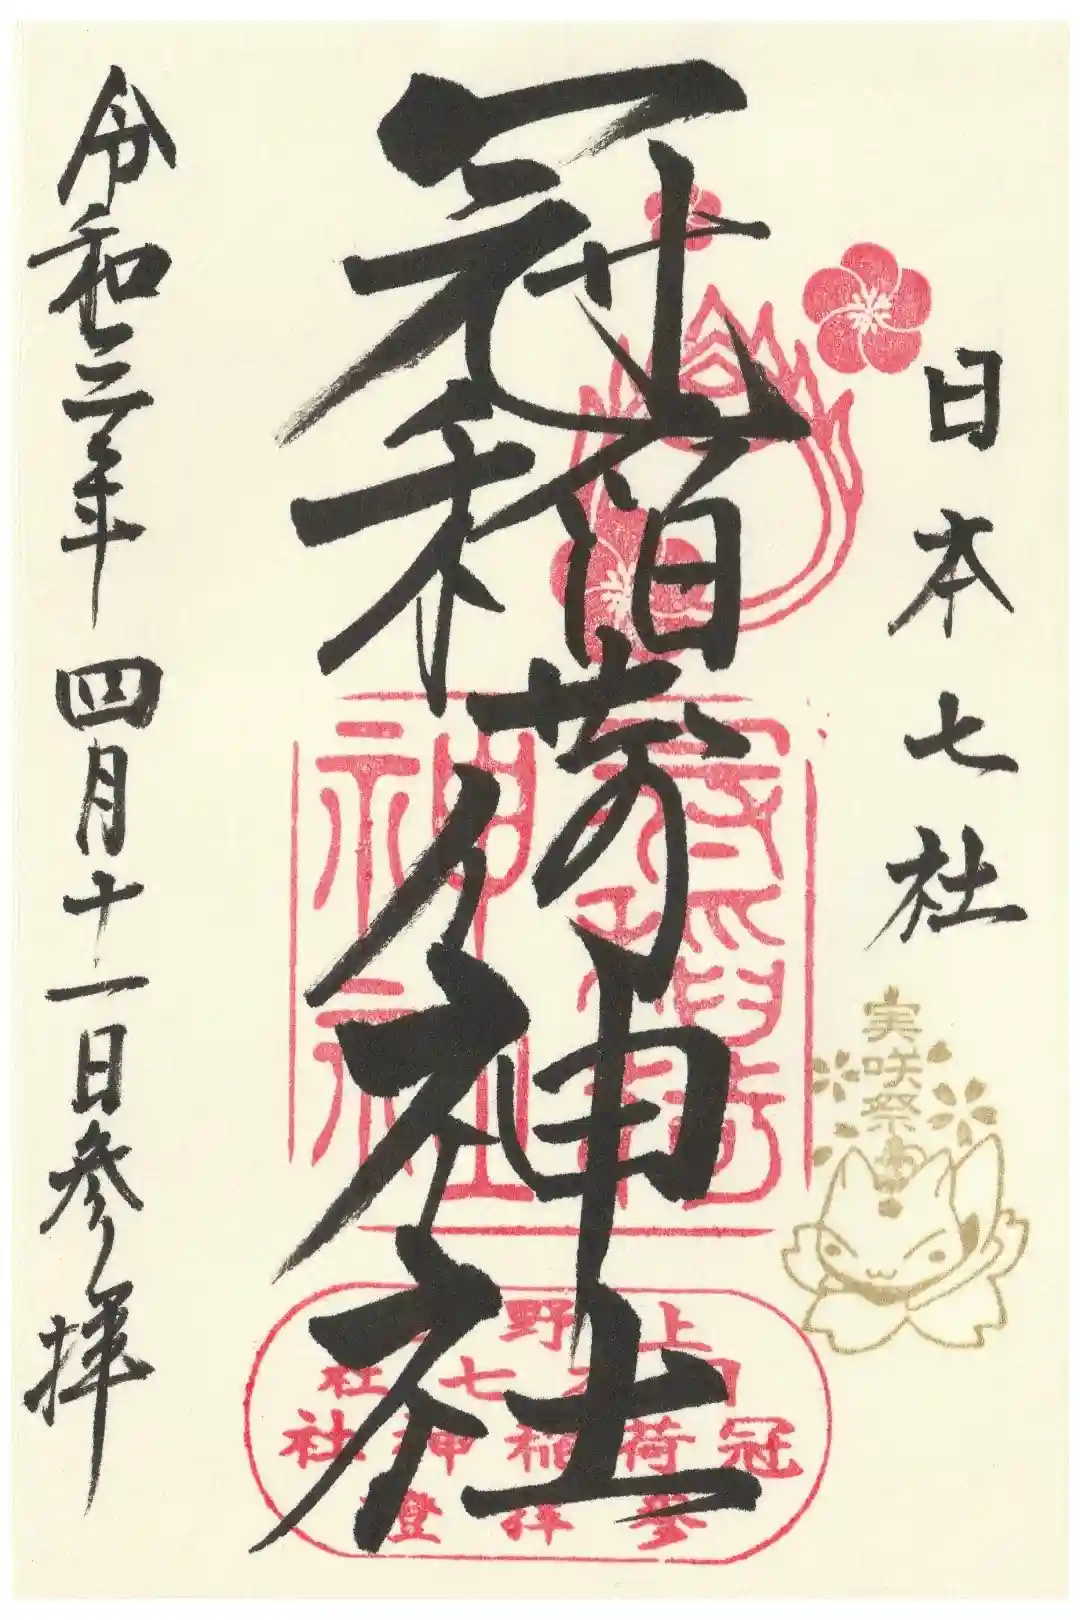 日本七社
冠稲荷神社
令和三年 四月十一日参拝
実咲祭
上野
日本七社
冠稲荷神社
参拝證